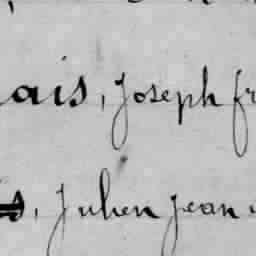 ais, Joseph fr
s, Julien Jean